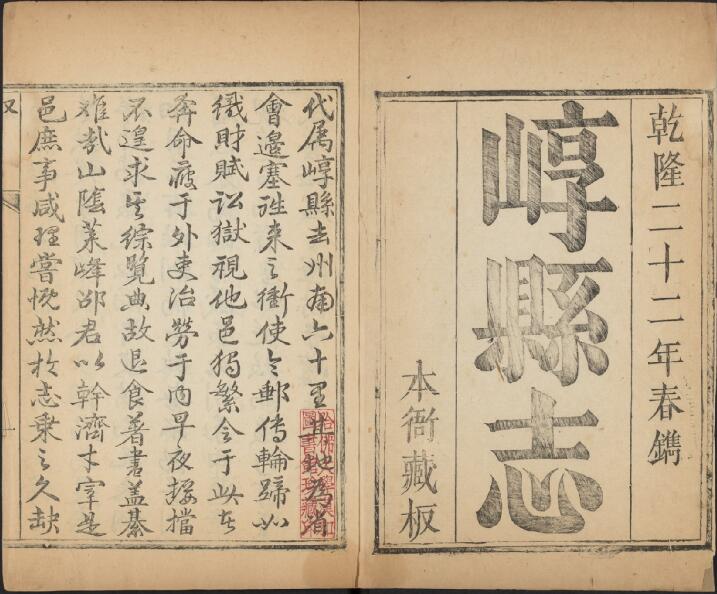 乾隆二十二年春鐫
崞縣志
本衙藏板
代属崞縣去州南六十里其地為省
會邊塞往来之衝使令郵傳輪蹄如
織財賦訟獄視他邑獨繁令于此者
奔命疲于外吏治勞于内早夜摒擋
不遑求其綜覽典故退食著書盖綦
难㢤山陰莱峰邵君以幹濟才宰是
邑庶事咸理嘗慨然於志乗之久缺